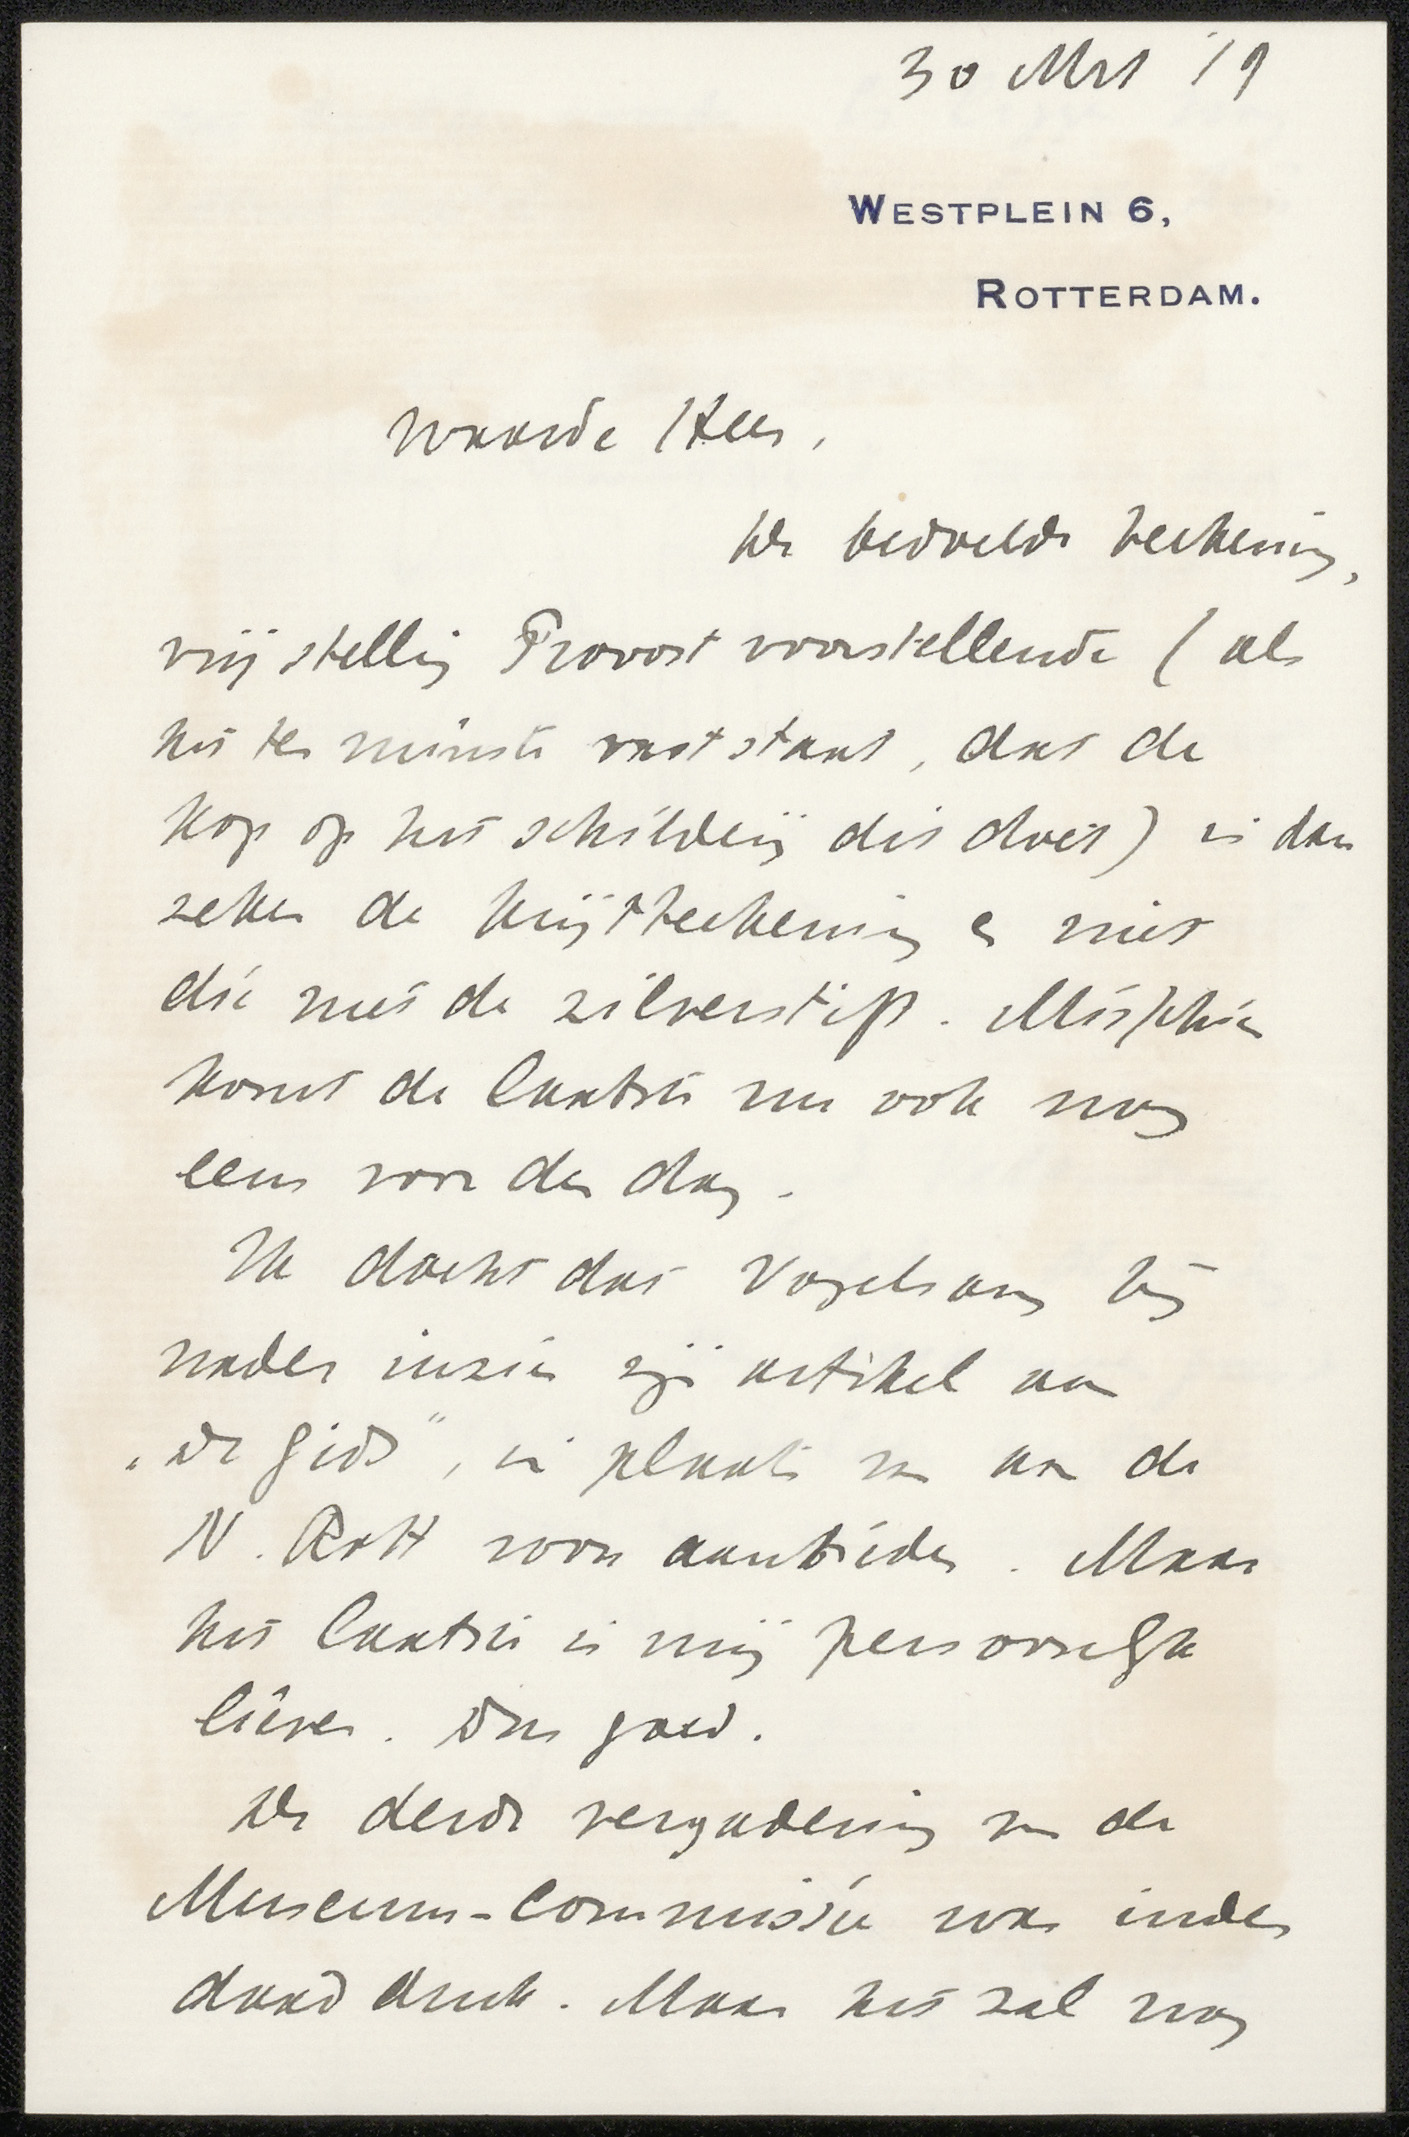 30 Mrt '19
WESTPLEIN 6,
ROTTERDAM.
Waarde Heer,
De bedoelde teekening,
vrij stellig Provost voorstellende (als
het ten minste vast staat, dat de
kop op het schilderij dit doet) is dan
zeker de krijtteekening en niet
die met de zilverstift. Misschien
komt de laatste nu ook nog
eens voor den dag.
Ik dacht dat Vogelsang bij
nader inzien zijn artikel aan
„de Gids", in plaats van aan de
N. Rott zou aanbieden. Maar
het laatste is mij persoonlijk
liever. Dus goed.
De derde vergadering van de
Museum-Commissie was inder
daad druk. Maar het zal nog